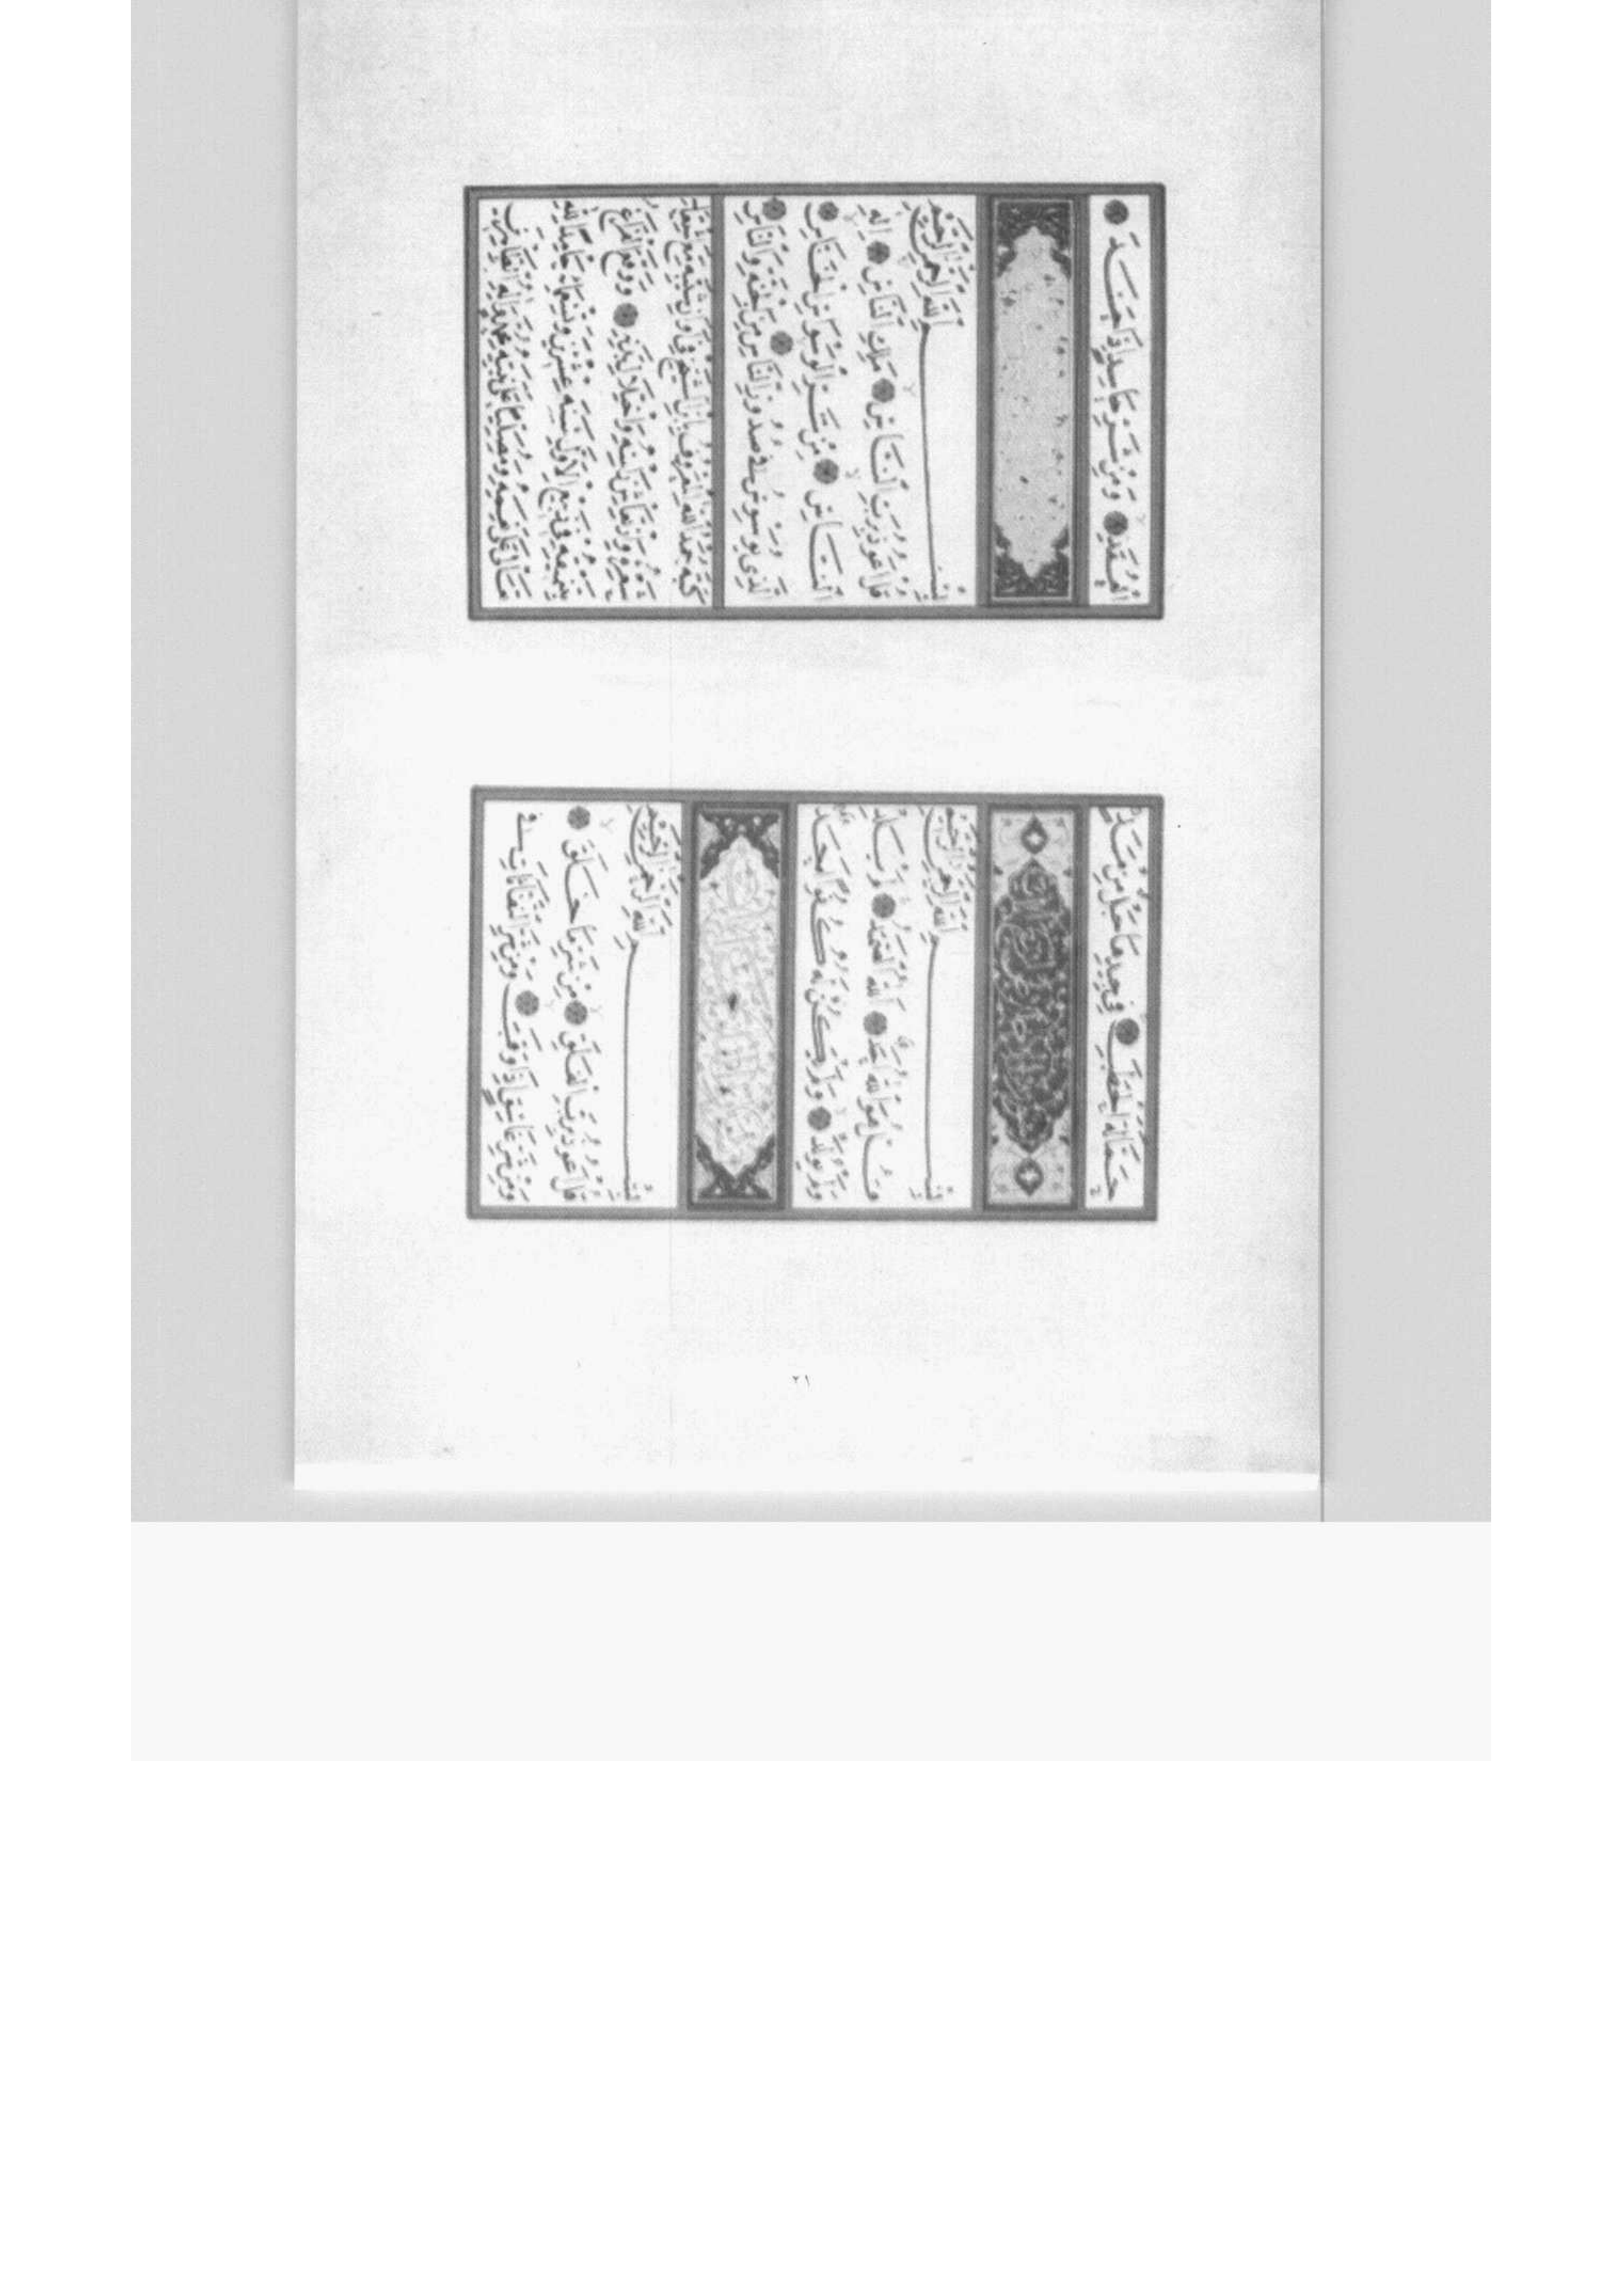 حَمَّالَةَ الْحَطَبِ فِي جِيدِهَا حَبْلٌ مِنْ مَسَدٍ
بِسْمِ اللَّهِ الرَّحْمَنِ الرَّحِيمِ
قُلْ هُوَ اللَّهُ أَحَدٌ اللَّهُ الصَّمَدُ لَمْ يَلِدْ
وَلَمْ يُولَدْ وَلَمْ يَكُنْ لَهُ كُفُوًا أَحَدٌ
بِسْمِ اللَّهِ الرَّحْمَنِ الرَّحِيمِ
قُلْ أَعُوذُ بِرَبِّ الْفَلَقِ مِنْ شَرِّ مَا خَلَقَ
وَمِنْ شَرِّ غَاسِقٍ إِذَا وَقَبَ وَمِنْ شَرِّ النَّفَّاثَاتِ فِي
الْعُقَدِ وَمِنْ شَرِّ حَاسِدٍ إِذَا حَسَدَ
بِسْمِ اللَّهِ الرَّحْمَنِ الرَّحِيمِ
قُلْ أَعُوذُ بِرَبِّ النَّاسِ مَلِكِ النَّاسِ إِلَهِ
النَّاسِ مِنْ شَرِّ الْوَسْوَاسِ الْخَنَّاسِ
الَّذِي يُوَسْوِسُ فِي صُدُورِ النَّاسِ مِنَ الْجِنَّةِ وَالنَّاسِ
كتبه حمد الله المعروف بابن الشيخ في
ووقع الفراغ
في ربيع الأول سنة عشرين وتسعمائة حامدا لله
تعالى على نعمه ومصليا على نبيه محمد وآله
٢١